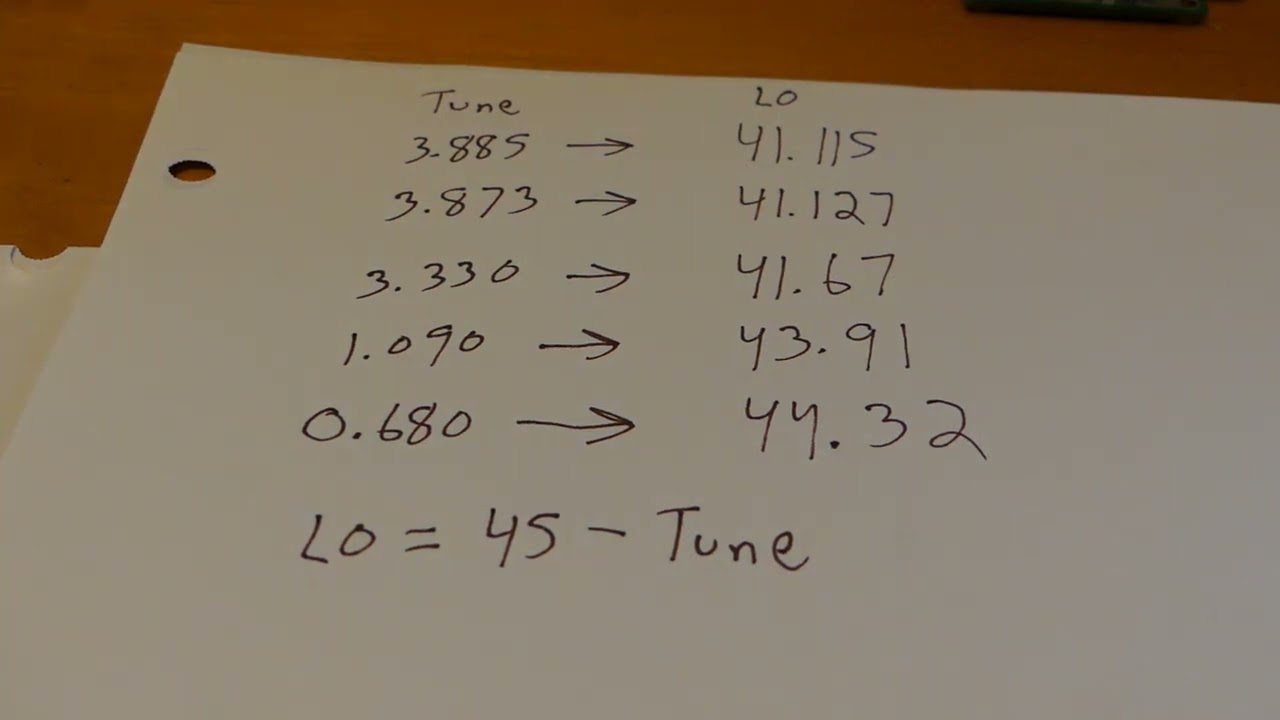 Tune LO
3.885 → 41.115
3.873 → 41.127
3.330 → 41.67
1.090 → 43.91
0.680 → 44.32
LO = 45 - Tune